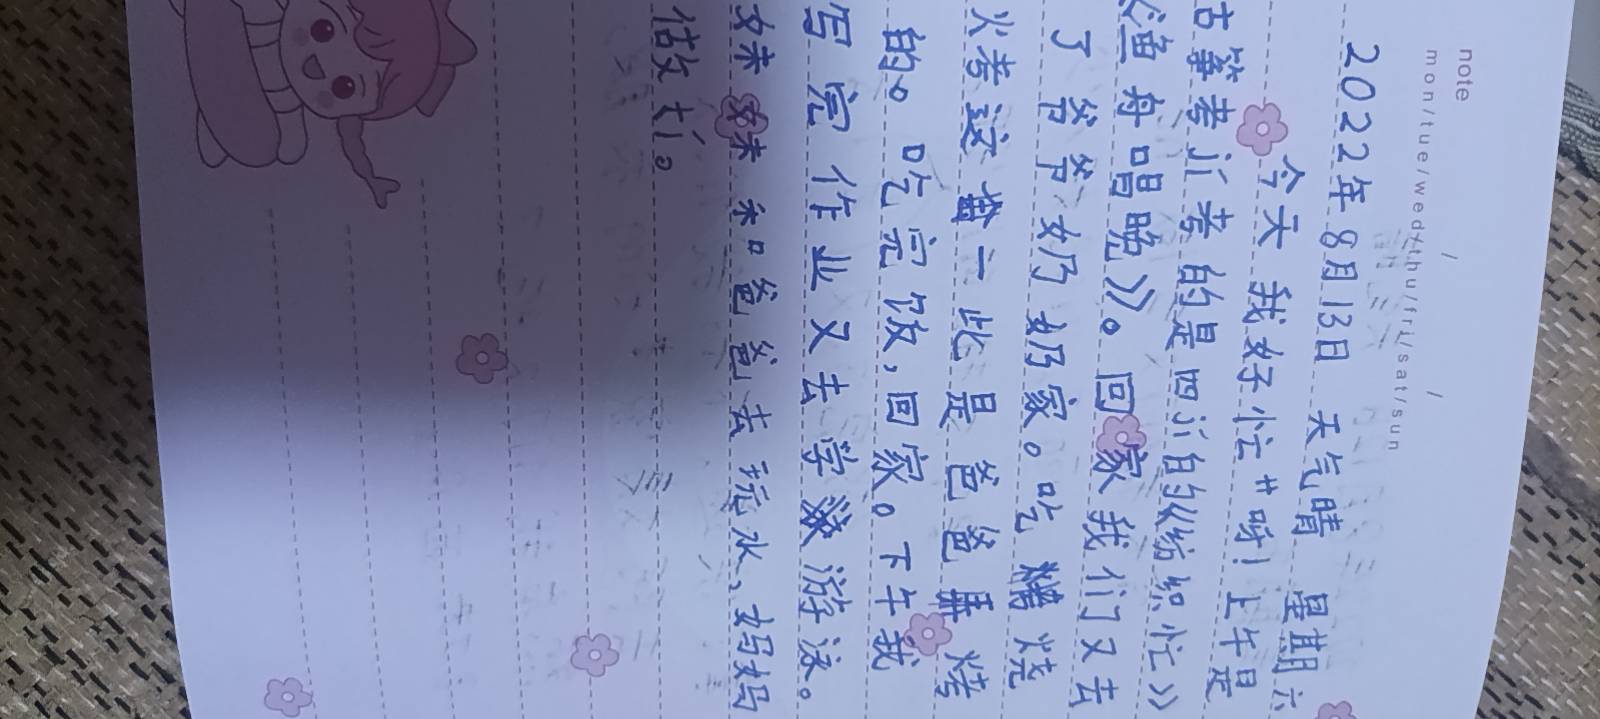 note
mon/tue/wed/thu/fri/sat/sun
2022年8月13日 天气晴 星期六
今天我好忙呀！上午是
古筝考jí考的是四jí的《纺织忙》
《渔舟唱晚》。回家我们又去
了爷爷奶奶家。吃烧
火考这一此是爸爸烤
的。吃完饭，回家。下午我
写完作业又去学游泳。
妹妹和爸爸去玩水，妈妈
估攵